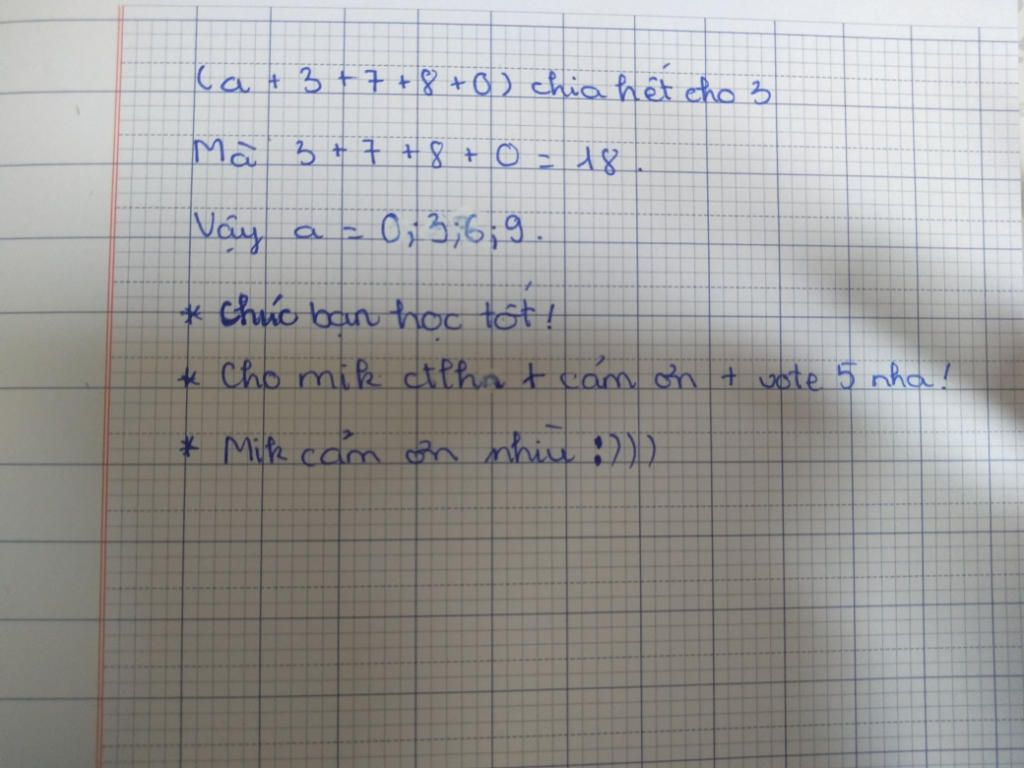 (a + 3 + 7 + 8 + 0) chia hết cho 3
Mà 3 + 7 + 8 + 0 = 18.
Vậy a = 0; 3; 6; 9.
* Chúc bạn học tốt!
* Cho mik ctlhn + cảm ơn + vote 5 nha!
* Mik cảm ơn nhìu :)))